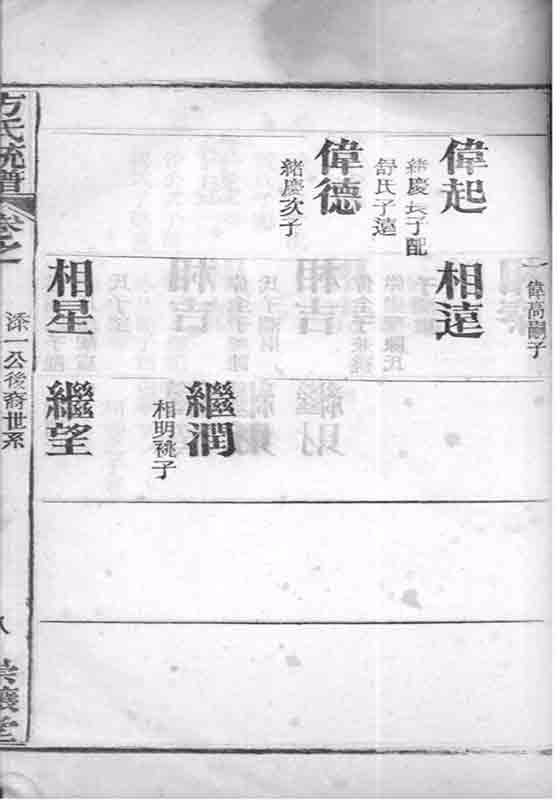 偉起
緒慶長子配
舒氏子遠
偉德
緒慶次子
一偉高嗣子
相遠
相星
繼潤
相明祧子
繼望
方氏統譜
卷之
添一公後裔世系
八